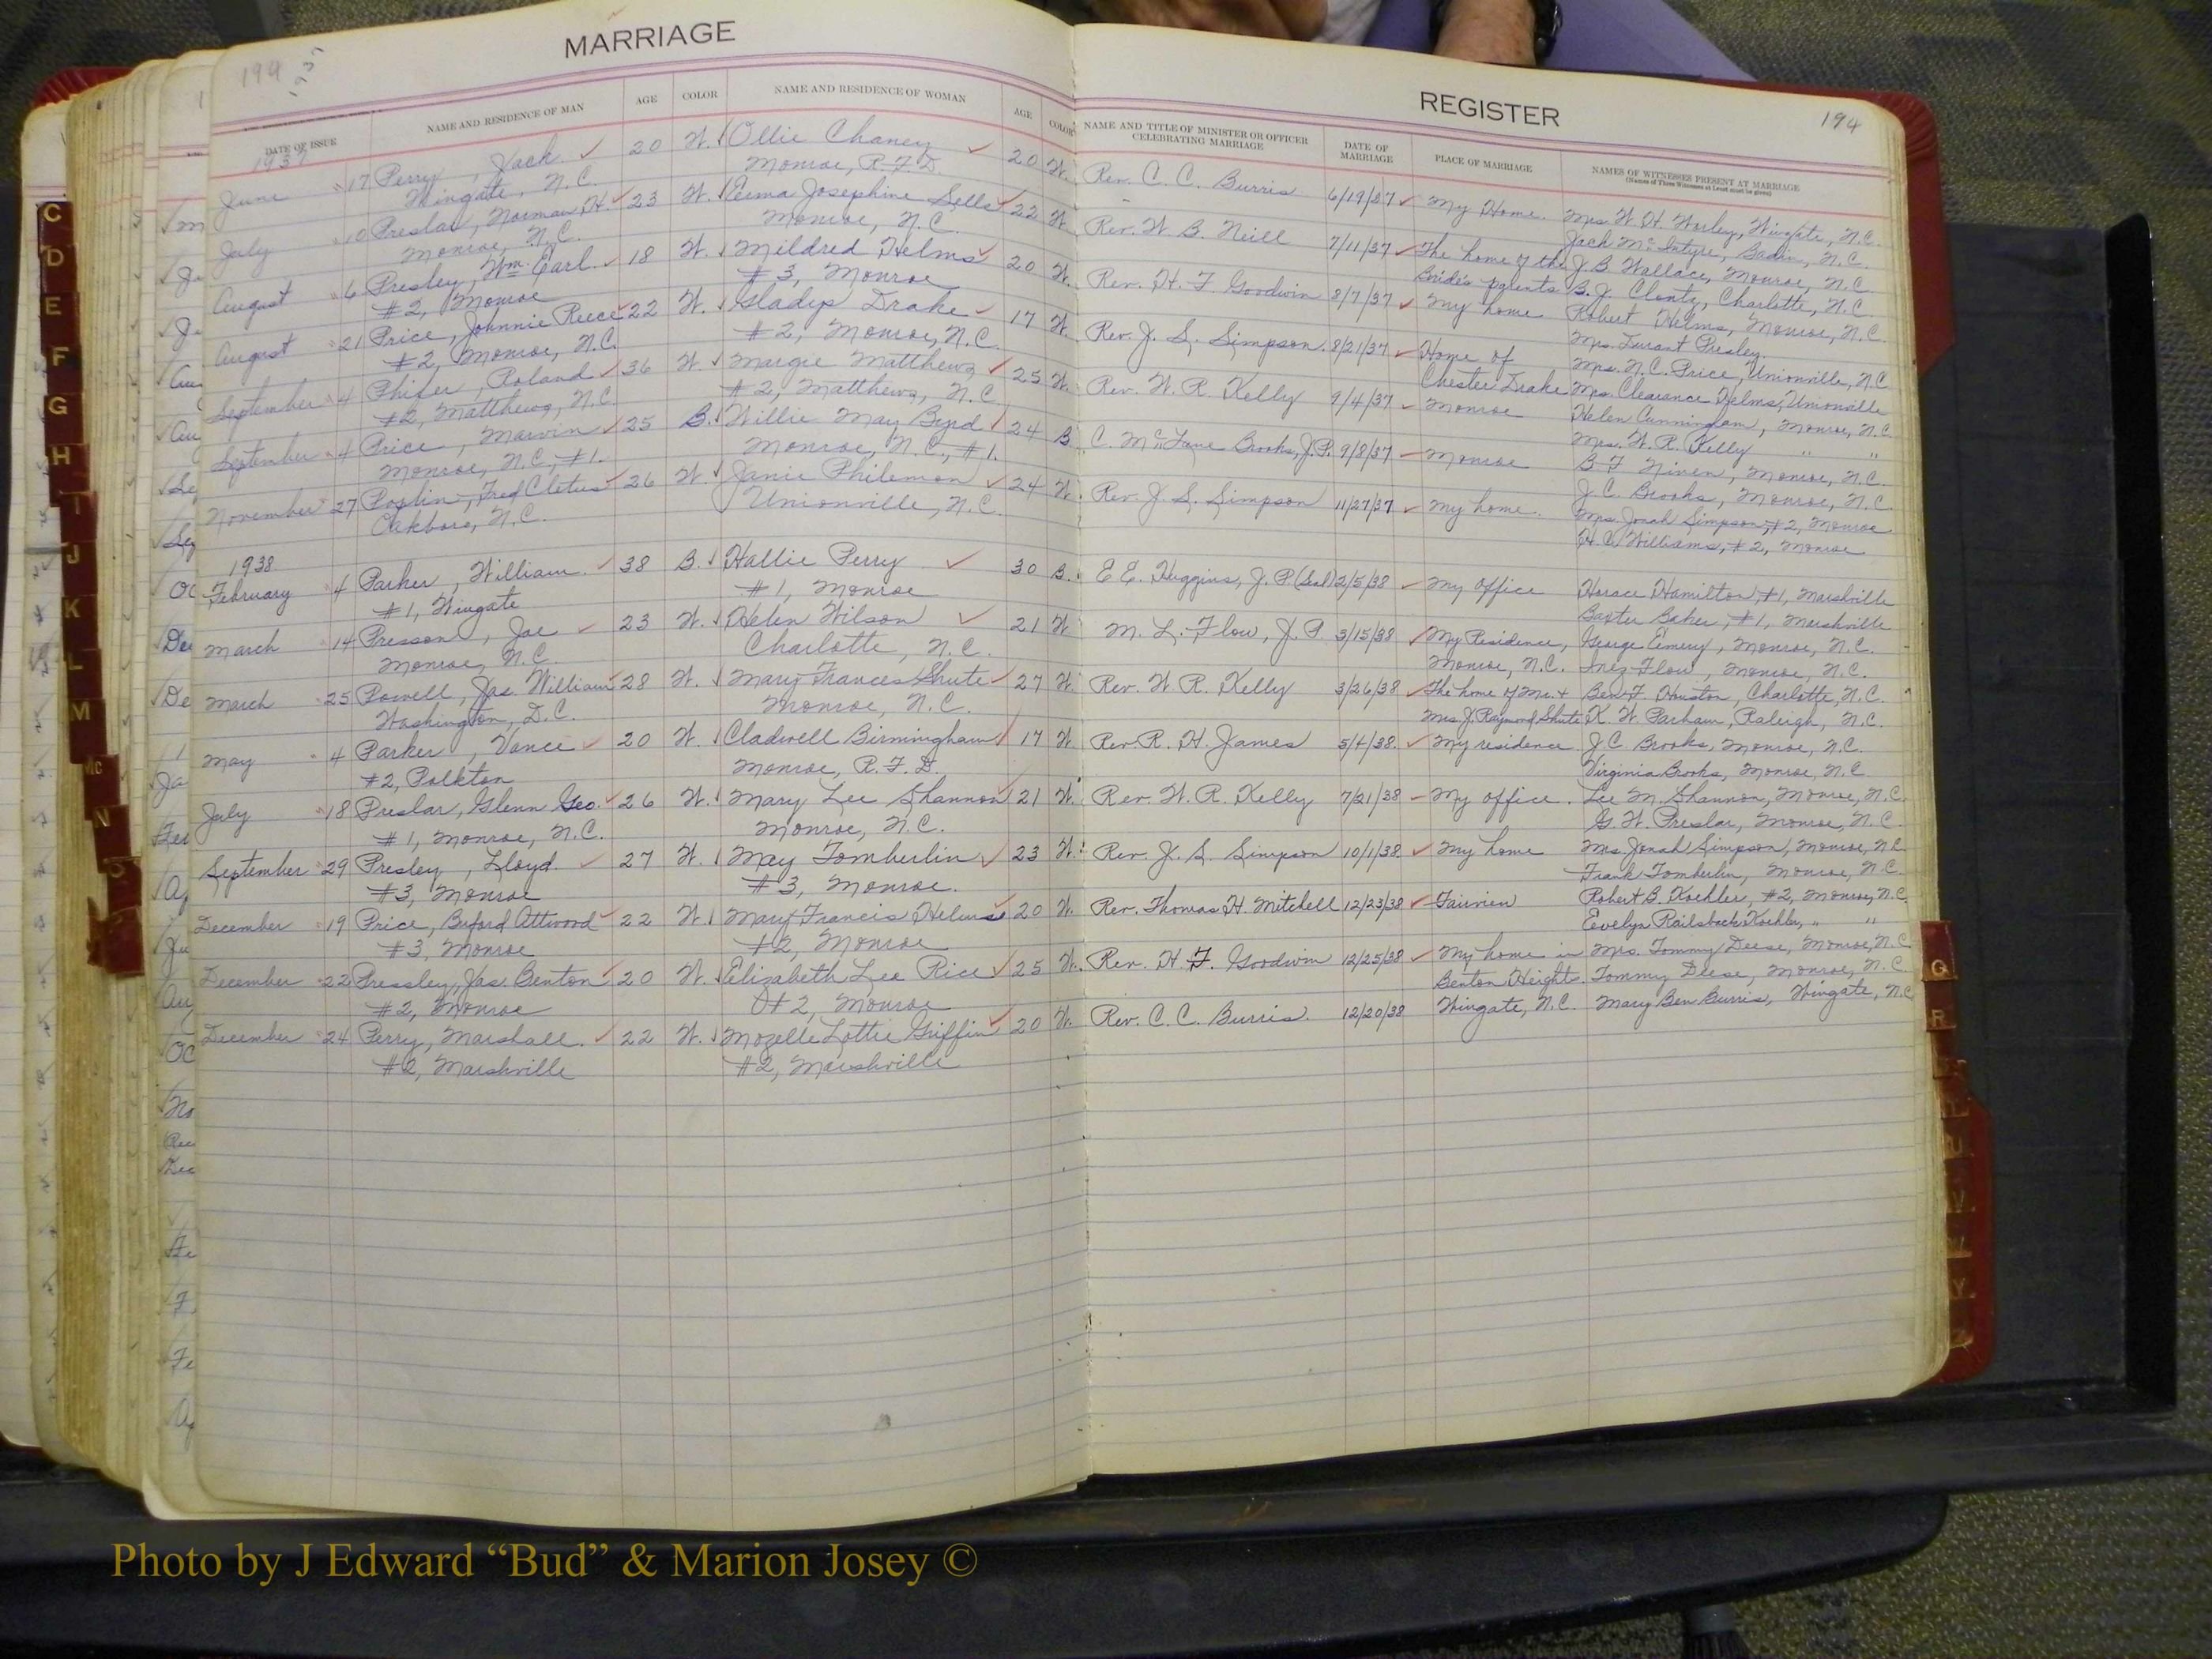 MARRIAGE
194
1937
DATE OF ISSUE
NAME AND RESIDENCE OF MAN
AGE
COLOR
NAME AND RESIDENCE OF WOMAN
AGE
COLOR
REGISTER
194
NAME AND TITLE OF MINISTER OR OFFICER CELEBRATING MARRIAGE
DATE OF MARRIAGE
PLACE OF MARRIAGE
NAMES OF WITNESSES PRESENT AT MARRIAGE
(Names of Three Witnesses at Least must be given)
1937
June 17 Perry, Jack 20 W. Ollie Chaney 20 W. Rev. C. C. Burris 6/19/37 My Home. Mrs. W. H. Worley, Wingate, N.C.
Wingate, N.C. Monroe, R.F.D. Jack McIntyre, Badin, N.C.
July 10 Preslar, Norman H. 23 W. Erma Josephine Sells 22 W. Rev. W. B. Neill 7/11/37 The home of the J. B. Wallace, Monroe, N.C.
Monroe, N.C. Monroe, N.C. Bride's parents B. J. Clontz, Charlotte, N.C.
August 6 Presley, Wm. Earl 18 W. Mildred Helms 20 W. Rev. H. F. Goodwin 8/7/37 My home Robert Helms, Monroe, N.C.
#2, Monroe #3, Monroe Mrs. Durant Presley.
August 21 Price, Johnnie Reece 22 W. Gladys Drake 17 W. Rev. J. S. Simpson. 8/21/37 Home of Mrs. N.C. Price, Unionville, N.C.
#2, Monroe, N.C. #2, Monroe, N.C. Chester Drake Mrs. Clearance Helms, Unionville
September 4 Phifer, Roland 36 W. Margie Matthews 25 W. Rev. W. R. Kelly 9/4/37 Monroe Helen Cunningham, Monroe, N.C.
#2, Matthews, N.C. #2, Matthews, N.C. Mrs. W. R. Kelly " "
September 4 Price, Marvin 25 B. Willie May Byrd 24 B. C. McLane Brooks, J.P. 9/8/37 Monroe B. F. Niven, Monroe, N.C.
Monroe, N.C., #1. Monroe, N.C., #1. J. C. Brooks, Monroe, N.C.
November 27 Poplin, Fred Cletus 26 W. Janie Philemon 24 W. Rev. J. S. Simpson 11/27/37 My home. Mrs. Jonah Simpson, #2, Monroe
Oakboro, N.C. Unionville, N.C. H. C. Williams, #2, Monroe
1938
February 4 Parker, William 38 B. Hallie Perry 30 B. E. E. Huggins, J. P. (Seal) 2/5/38 My office Horace Hamilton, #1, Marshville
#1, Wingate #1, Monroe Baxter Baker, #1, Marshville
March 14 Presson, Joe 23 W. Helen Wilson 21 W. M. L. Flow, J. P. 3/15/38 My Residence, George Emery, Monroe, N.C.
Monroe, N.C. Charlotte, N.C. Monroe, N.C. Inez Flow, Monroe, N.C.
March 25 Powell, Jas. William 28 W. Mary Frances Shute 27 W. Rev. W. R. Kelly 3/26/38 The home of Mr. + Ben F. Houston, Charlotte, N.C.
Washington, D.C. Monroe, N.C. Mrs. J. Raymond Shute K. W. Parham, Raleigh, N.C.
May 4 Parker, Vance 20 W. Cladwell Birmingham 17 W. Rev. R. H. James 5/4/38. My residence J. C. Brooks, Monroe, N.C.
#2, Polkton Monroe, R.F.D. Virginia Brooks, Monroe, N.C.
July 18 Preslar, Glenn Geo. 26 W. Mary Lee Shannon 21 W. Rev. W. R. Kelly 7/21/38 My office. Lee M. Shannon, Monroe, N.C.
#1, Monroe, N.C. Monroe, N.C. G. W. Preslar, Monroe, N.C.
September 29 Presley, Lloyd. 27 W. May Tomberlin 23 W. Rev. J. S. Simpson 10/1/38 My home Mrs. Jonah Simpson, Monroe, N.C.
#3, Monroe #3, Monroe. Frank Tomberlin, Monroe, N.C.
December 19 Price, Buford Attwood 22 W. Mary Francis Helms 20 W. Rev. Thomas H. Mitchell 12/23/38 Fairview Robert B. Koehler, #2, Monroe, N.C.
#3, Monroe #2, Monroe Evelyn Railsback Koehler, " "
December 22 Pressley, Jas. Benton 20 W. Elizabeth Lee Rice 25 W. Rev. H. F. Goodwin 12/25/38 My home in Mrs. Tommy Deese, Monroe, N.C.
#2, Monroe #2, Monroe Benton Height. Tommy Deese, Monroe, N.C.
December 24 Perry, Marshall. 22 W. Mozelle Lottie Griffin 20 W. Rev. C. C. Burris. 12/20/38 Wingate, N.C. Mary Ben Burris, Wingate, N.C.
#2, Marshville #2, Marshville
C
D
E
F
G
H
I
J
K
L
M
Mc
N
O
Q
R
U
V
Y
Z
Photo by J Edward “Bud” & Marion Josey ©